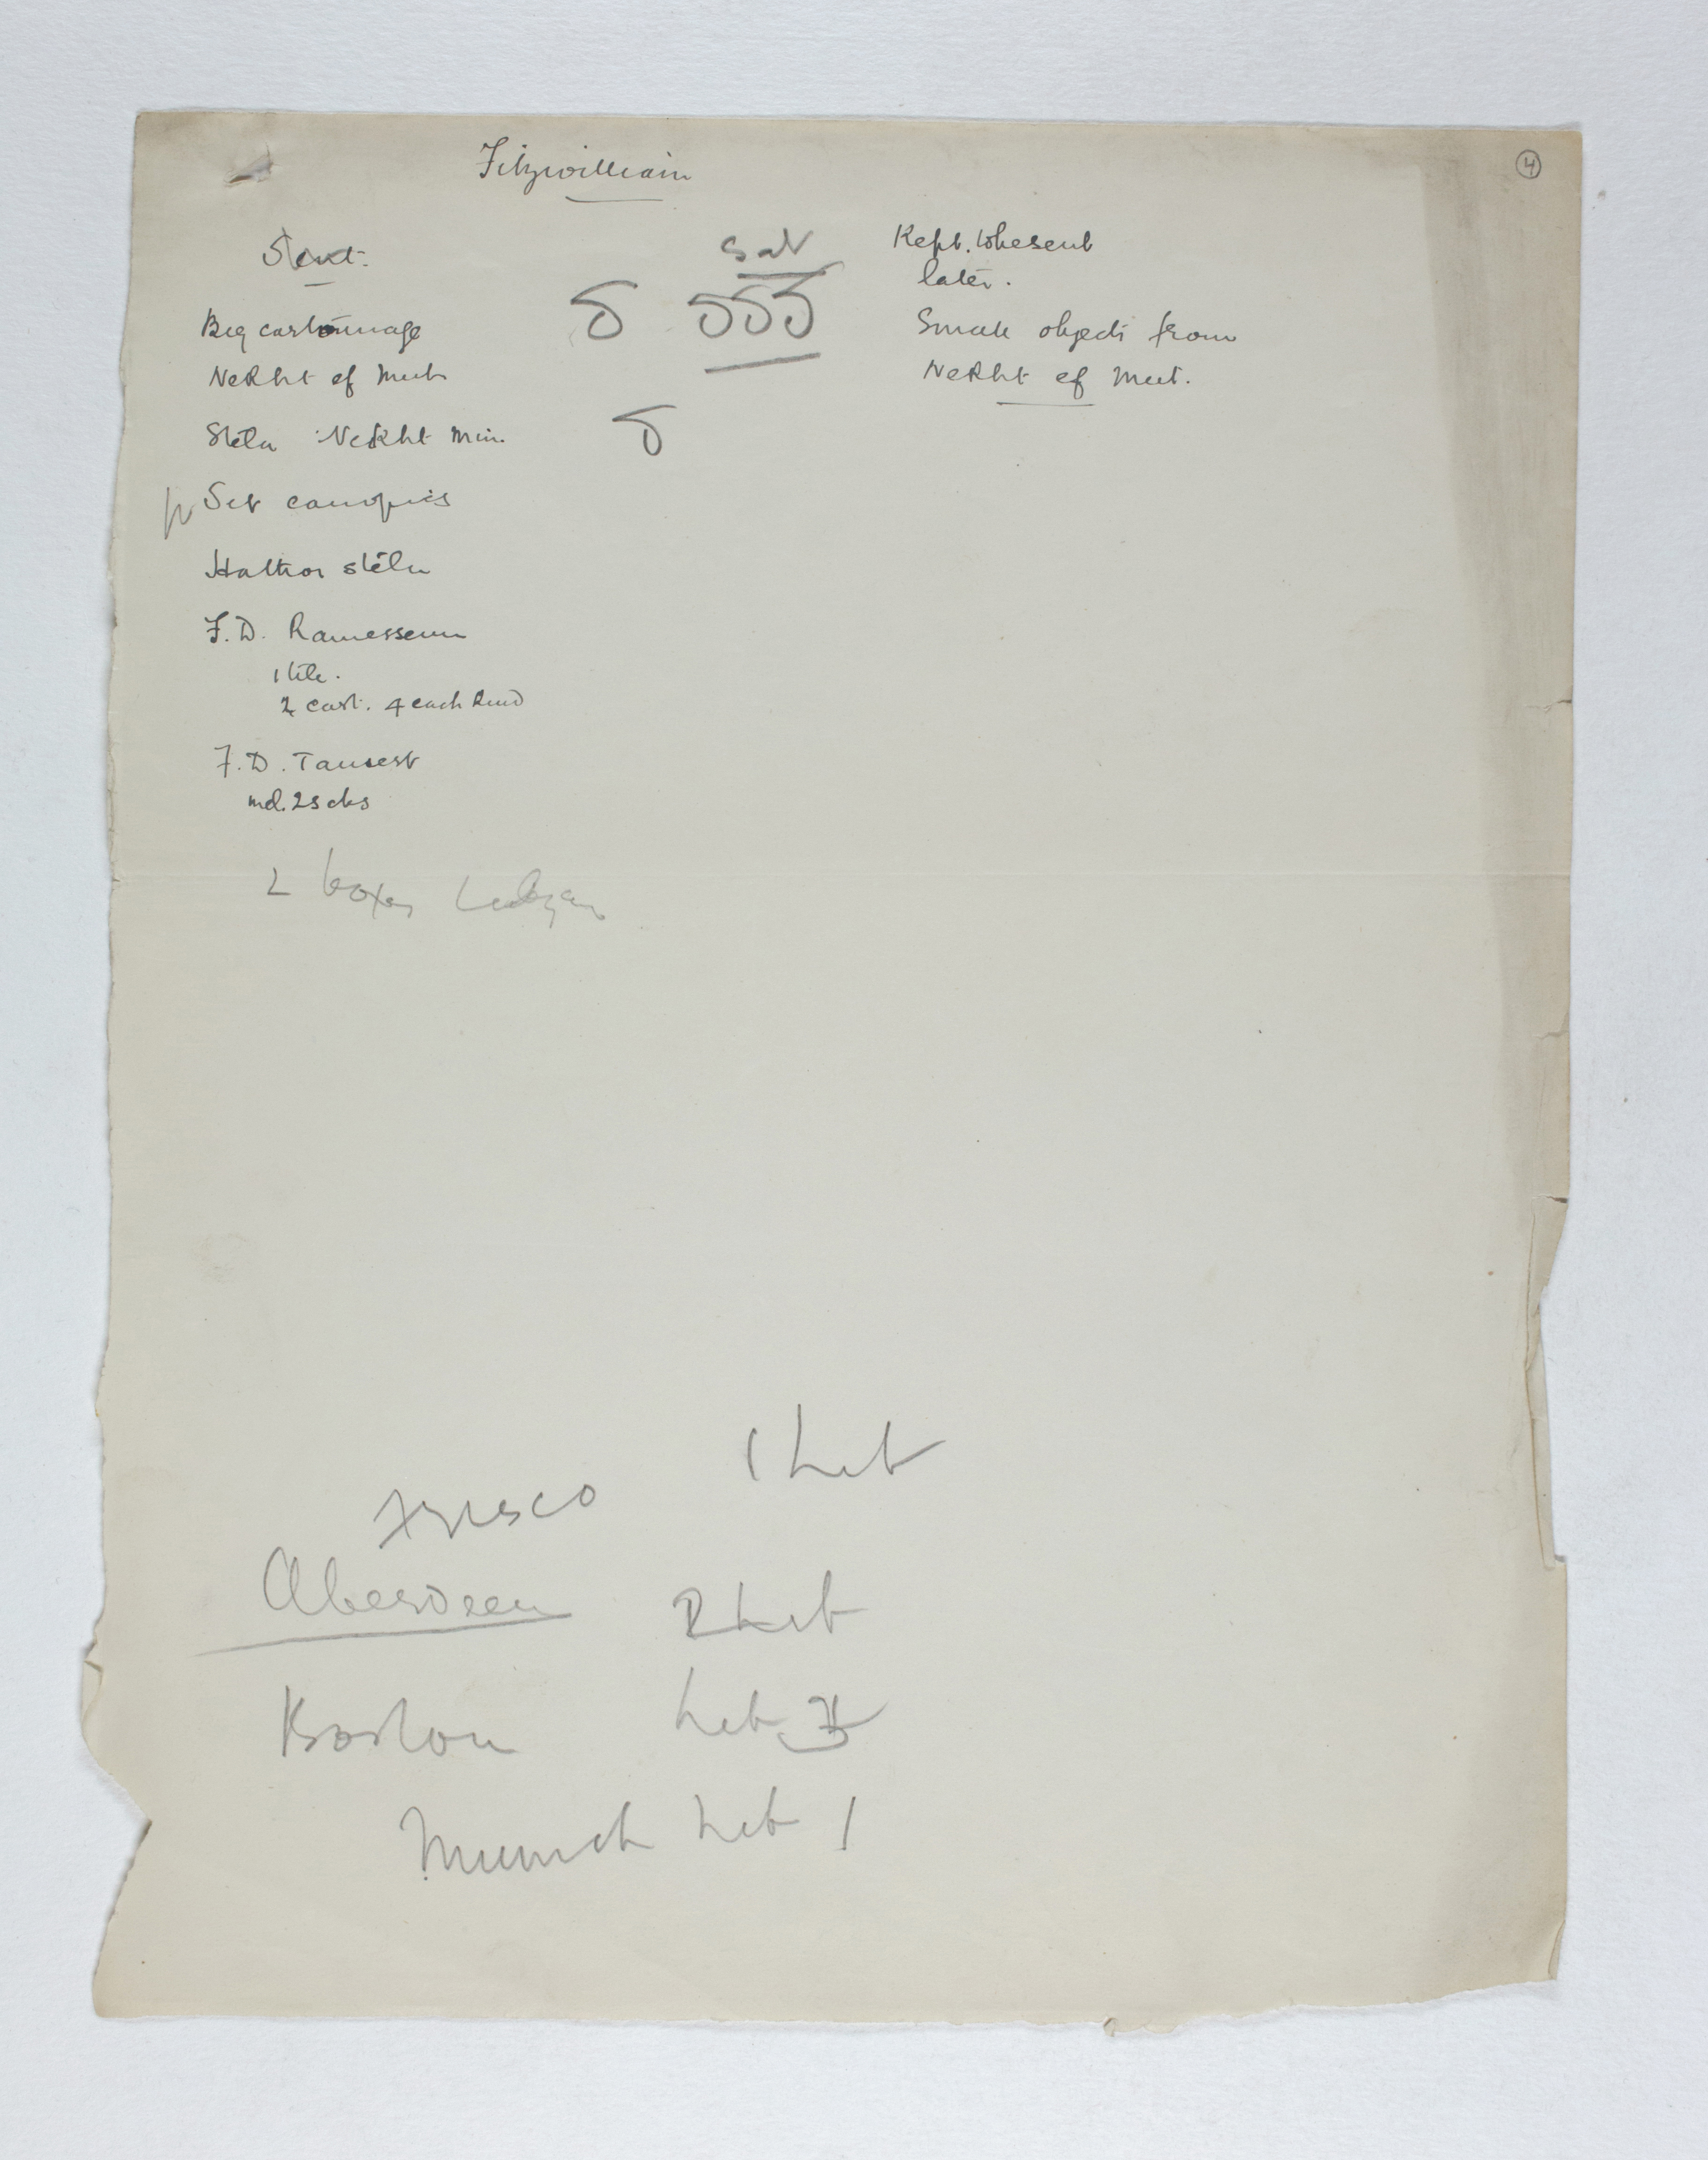 4
Fitzwilliam
Sent.
Big cartonnage
Nekht ef Mut
Stela Nekht Min.
Set canopics
Hathor stela
F.D. Ramesseum
1 tile.
2 cart. 4 each kind
F.D. Tausert
md. 2 scbs
2 boxes
Kept. to be sent
later.
Small objects from
Nekht ef Mut.
Frisco 1 Let
Aberdeen 2 Let
Boston Let
Munich Let 1